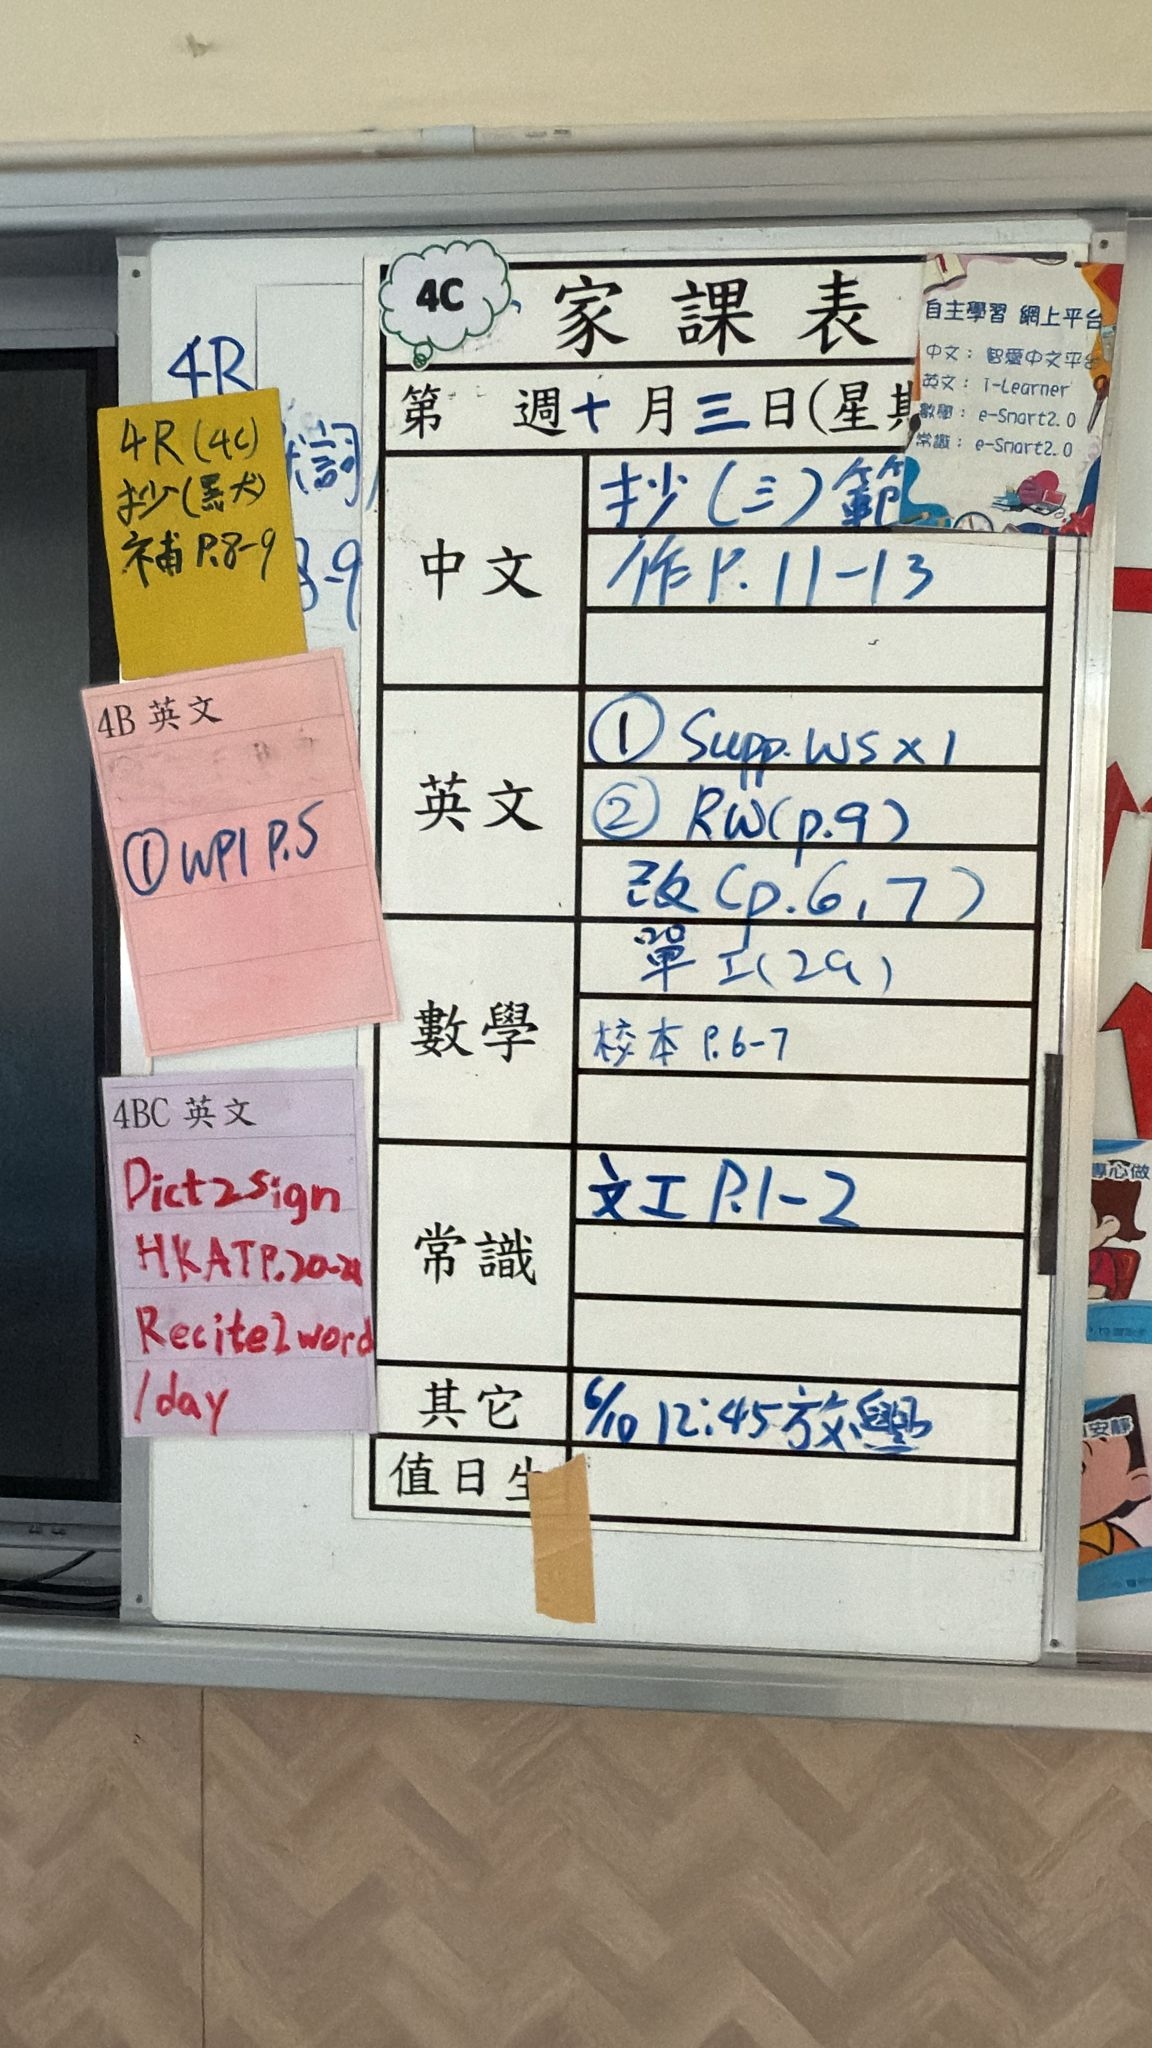 4C
家課表
第 週十月三日(星期
中文
抄(三)範
作P.11-13
英文
① Supp. WS x 1
② RW(p.9)
改(p.6,7)
數學
單工(2a)
校本 P.6-7
常識
文工 P.1-2
其它
6/10 12:45放學
值日生
自主學習 網上平台
中文: 智愛中文平台
英文: i-Learner
數學: e-Smart2.0
常識: e-Smart2.0
4R
詞
8-9
4R(4C)
抄(馬犬)
補 P.8-9
4B 英文
① WP1 P.5
4BC 英文
Dict2sign
HKATP.20-21
Recite2word
/day
專心做
安靜